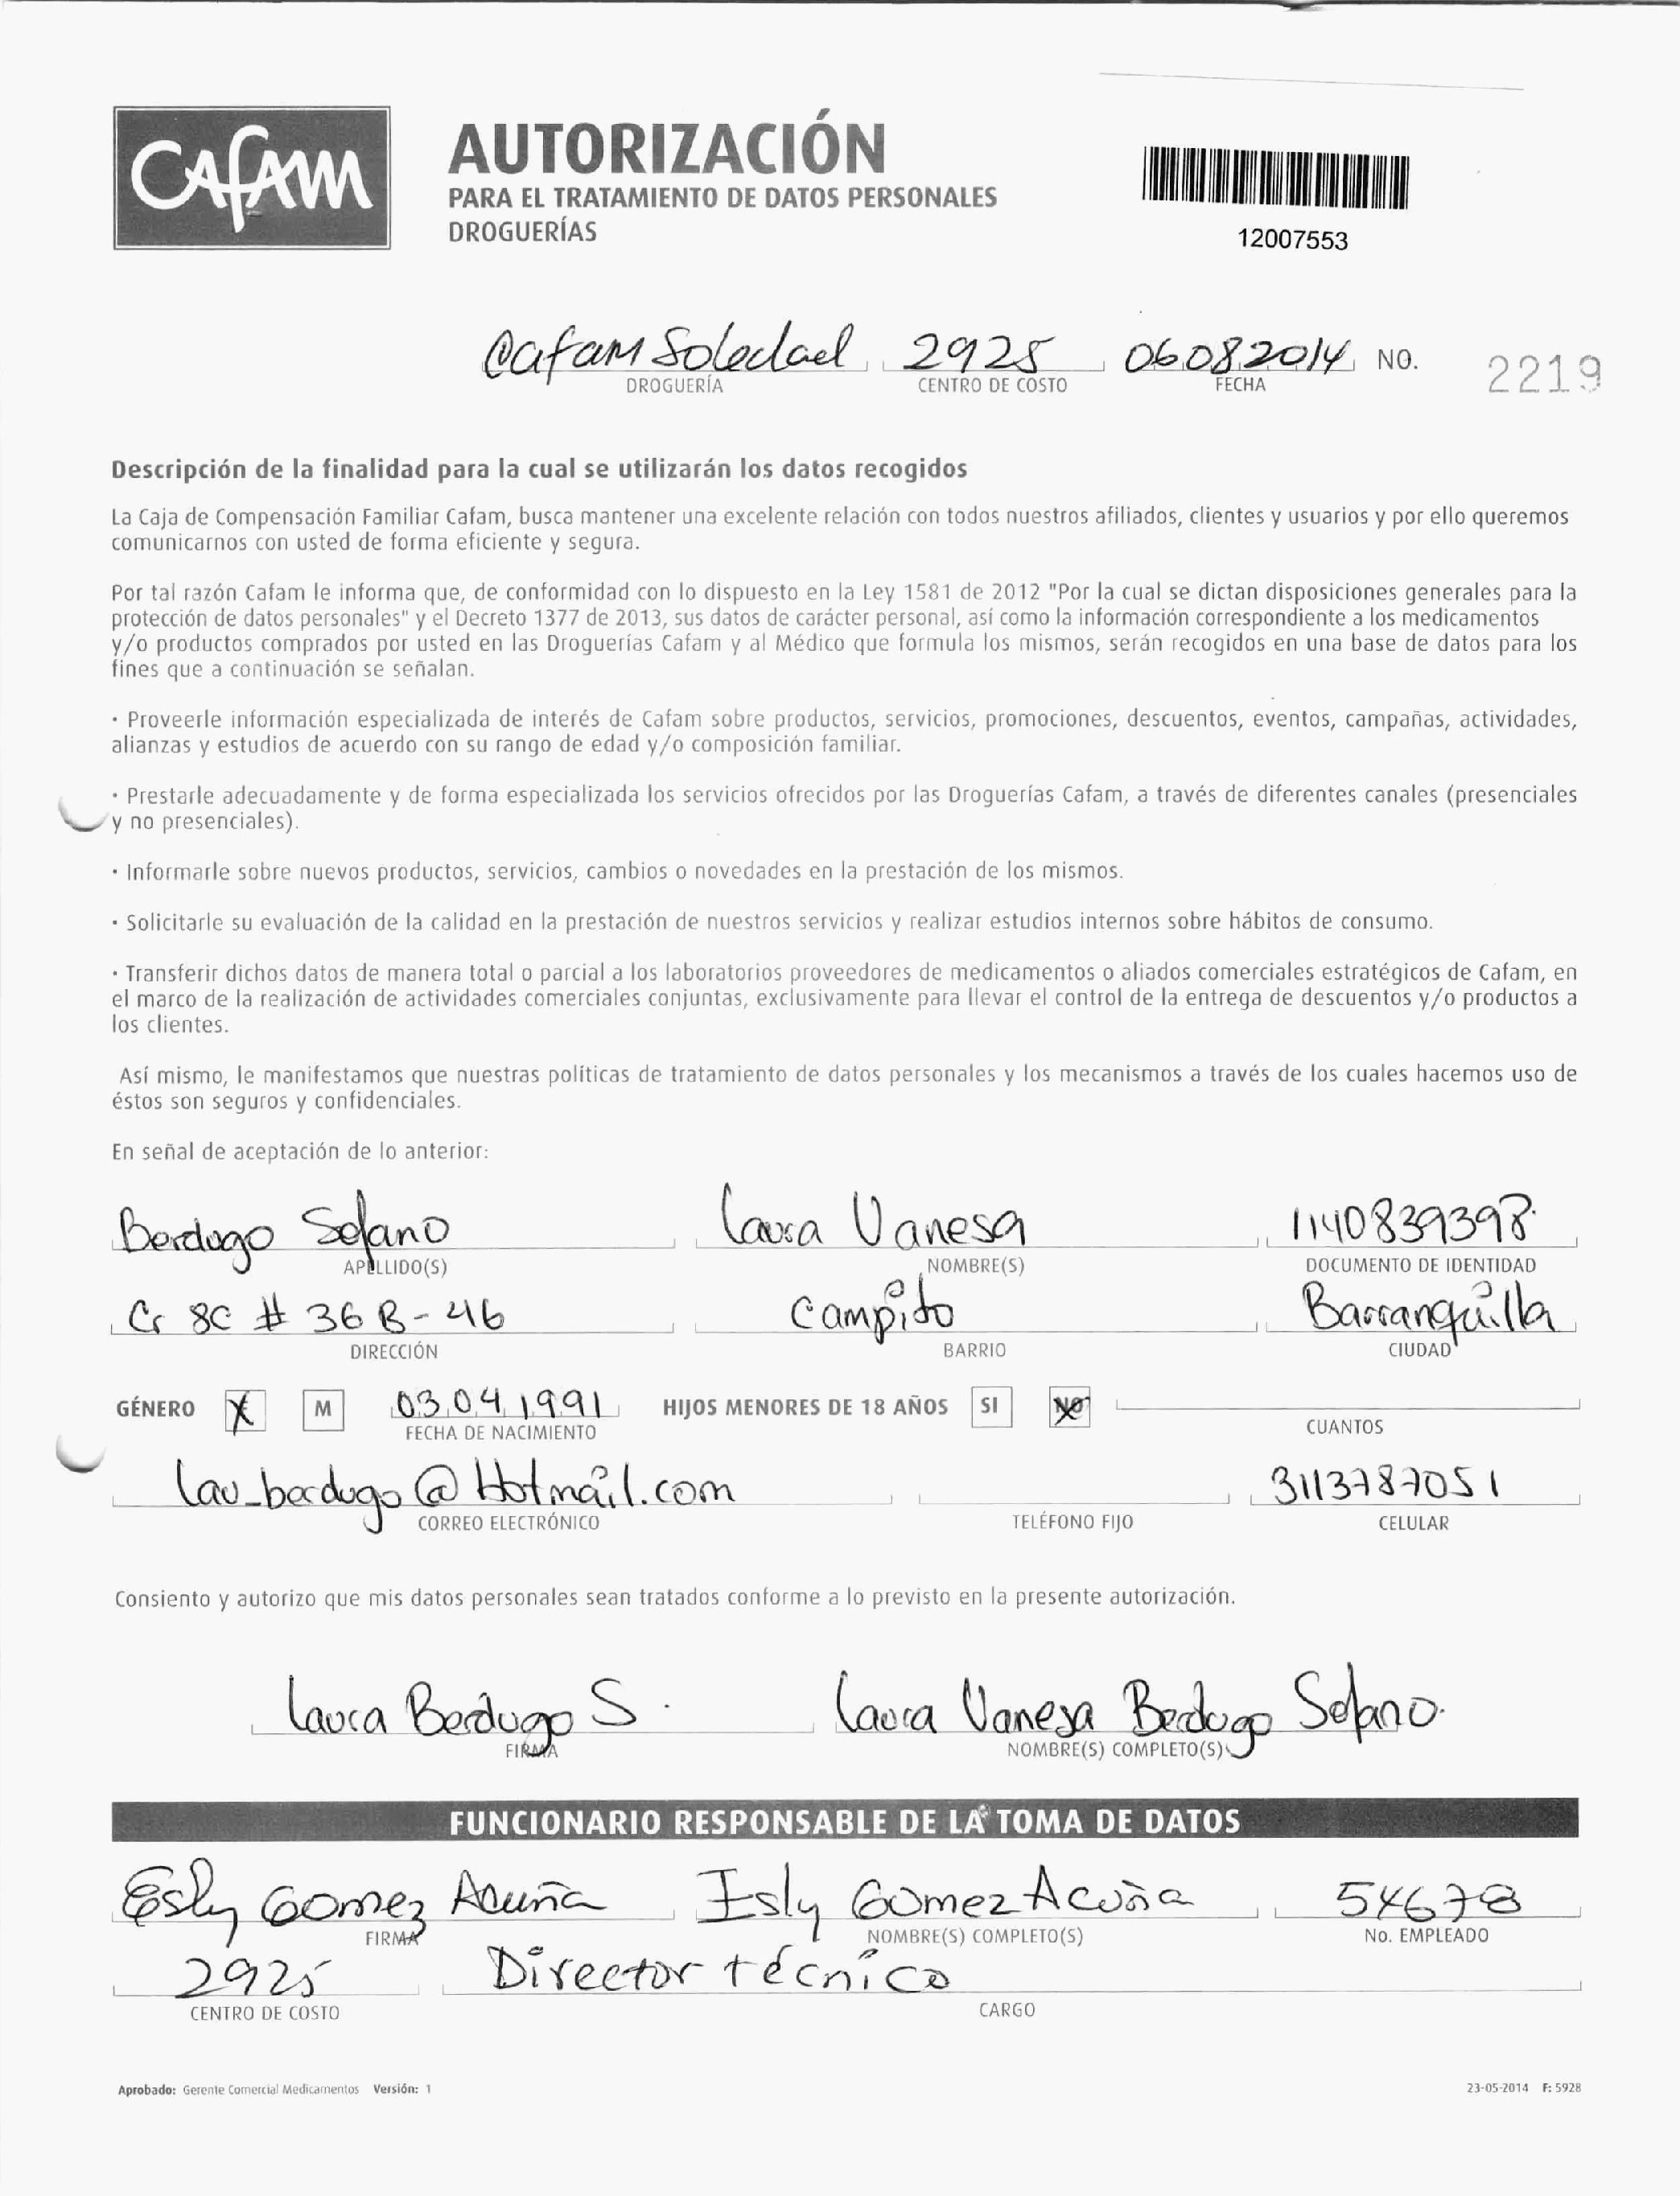 CAFAM
AUTORIZACIÓN
PARA EL TRATAMIENTO DE DATOS PERSONALES
DROGUERÍAS
12007553
Cafam Soledad 2925 06 08 2014 NO. 2219
DROGUERÍA CENTRO DE COSTO FECHA
Descripción de la finalidad para la cual se utilizarán los datos recogidos
La Caja de Compensación Familiar Cafam, busca mantener una excelente relación con todos nuestros afiliados, clientes y usuarios y por ello queremos
comunicarnos con usted de forma eficiente y segura.
Por tal razón Cafam le informa que, de conformidad con lo dispuesto en la Ley 1581 de 2012 "Por la cual se dictan disposiciones generales para la
protección de datos personales" y el Decreto 1377 de 2013, sus datos de carácter personal, así como la información correspondiente a los medicamentos
y/o productos comprados por usted en las Droguerías Cafam y al Médico que formula los mismos, serán recogidos en una base de datos para los
fines que a continuación se señalan.
· Proveerle información especializada de interés de Cafam sobre productos, servicios, promociones, descuentos, eventos, campañas, actividades,
alianzas y estudios de acuerdo con su rango de edad y/o composición familiar.
· Prestarle adecuadamente y de forma especializada los servicios ofrecidos por las Droguerías Cafam, a través de diferentes canales (presenciales
y no presenciales).
· Informarle sobre nuevos productos, servicios, cambios o novedades en la prestación de los mismos.
· Solicitarle su evaluación de la calidad en la prestación de nuestros servicios y realizar estudios internos sobre hábitos de consumo.
· Transferir dichos datos de manera total o parcial a los laboratorios proveedores de medicamentos o aliados comerciales estratégicos de Cafam, en
el marco de la realización de actividades comerciales conjuntas, exclusivamente para llevar el control de la entrega de descuentos y/o productos a
los clientes.
Así mismo, le manifestamos que nuestras políticas de tratamiento de datos personales y los mecanismos a través de los cuales hacemos uso de
éstos son seguros y confidenciales.
En señal de aceptación de lo anterior:
Berdugo Solano Laura Vanesa 1140839398
APELLIDO(S) NOMBRE(S) DOCUMENTO DE IDENTIDAD
Cr 8C # 36 B - 46 Campito Barranquilla
DIRECCIÓN BARRIO CIUDAD
GÉNERO X M 03 04 1991 HIJOS MENORES DE 18 AÑOS SI NO
FECHA DE NACIMIENTO CUANTOS
lau_berdugo@Hotmail.com 3113787051
CORREO ELECTRÓNICO TELÉFONO FIJO CELULAR
Consiento y autorizo que mis datos personales sean tratados conforme a lo previsto en la presente autorización.
Laura Berdugo S. Laura Vanesa Berdugo Solano.
FIRMA NOMBRE(S) COMPLETO(S)
FUNCIONARIO RESPONSABLE DE LA TOMA DE DATOS
Esly Gomez Acuña Isly Gomez Acuña 54678
FIRMA NOMBRE(S) COMPLETO(S) No. EMPLEADO
2925 Director técnico
CENTRO DE COSTO CARGO
Aprobado: Gerente Comercial Medicamentos Versión: 1 23-05-2014 F: 5928